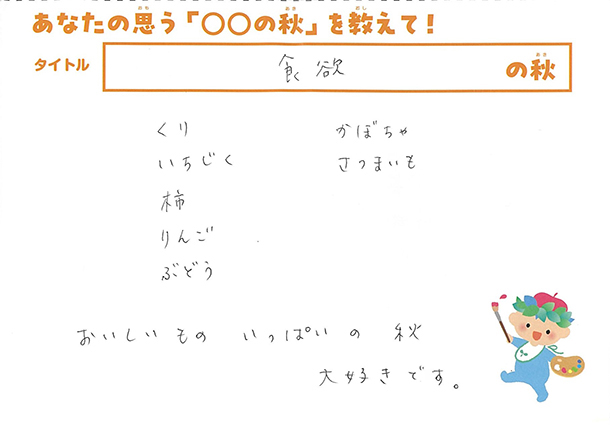 あなたの思う「〇〇の秋」を教えて！
タイトル 食欲 の秋
くり かぼちゃ
いちじく さつまいも
柿
りんご
ぶどう
おいしいもの いっぱいの 秋
大好きです。